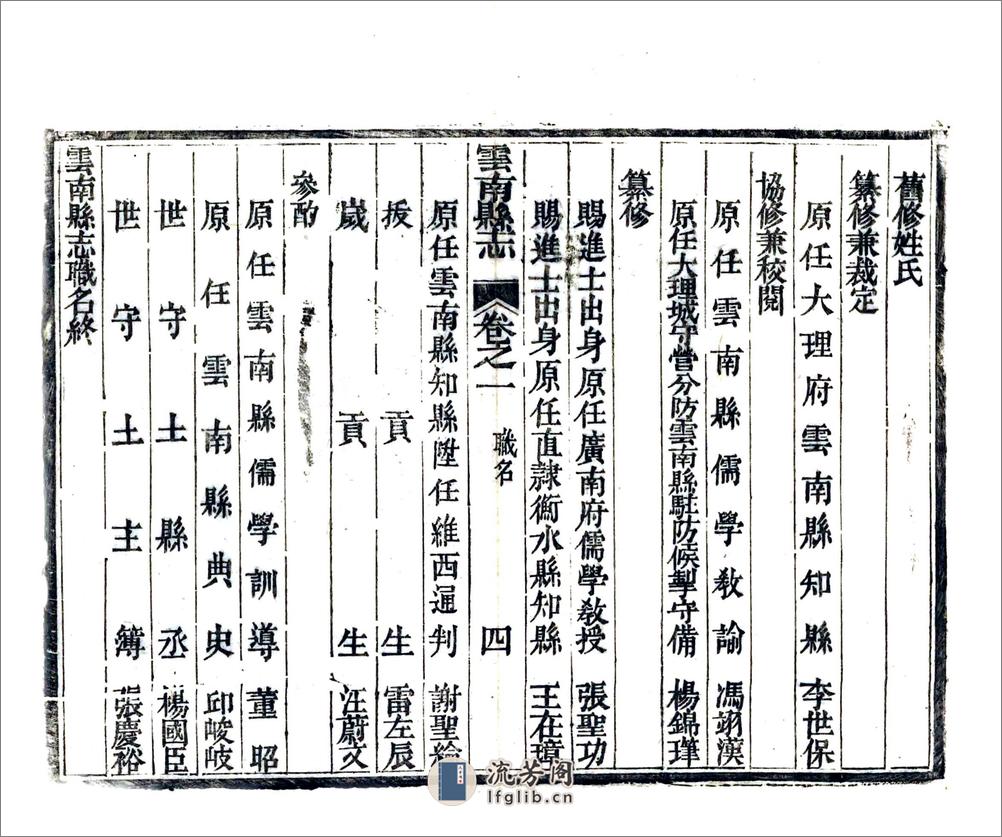 舊修姓氏
纂修兼裁定
原任大理府雲南縣知縣 李世保
協修兼校閱
原任雲南縣儒學敎諭 馮翊漢
原任大理城守營分防雲南縣駐防候掣守備 楊錦
纂修
賜進士出身原任廣南府儒學敎授 張聖功
賜進士出身原任直隸衡水縣知縣 王在璋
雲南縣志 卷之一 職名 四
原任雲南縣知縣陞任維西通判 謝聖綸
拔貢生 雷左辰
歲貢生 汪蔚文
參酌
原任雲南縣儒學訓導 董昭
原任雲南縣典史 邱峻岐
世守土縣丞 楊國臣
世守土主簿 張慶裕
雲南縣志職名終
流芳閣
lfglib.cn